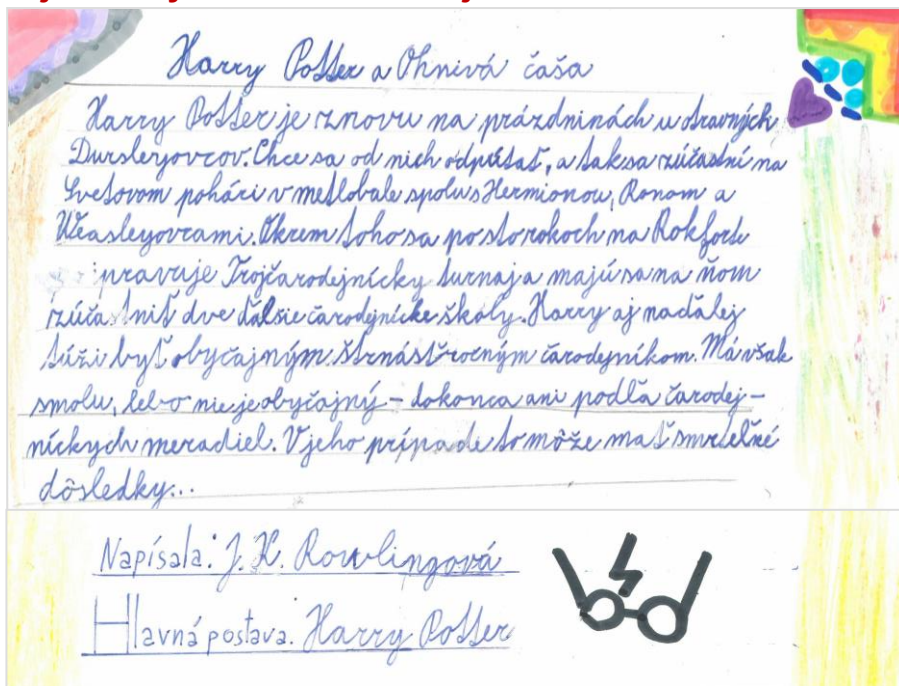 Harry Potter a Ohnivá čaša
Harry Potter je znovu na prázdninách u otravných
Dursleyovcov. Chce sa od nich odpútať, a tak sa zúčastní na
Svetovom pohári v metlobale spolu s Hermionou, Ronom a
Weasleyovcami. Okrem toho sa po sto rokoch na Rokforte
pravuje Trojčarodejnícky turnaj a majú sa na ňom
zúčastniť dve ďalšie čarodejnícke školy. Harry aj naďalej
túži byť obyčajným štrnásťročným čarodejníkom. Má však
smolu, lebo nie je obyčajný – dokonca ani podľa čarodej–
níckych meradiel. V jeho prípade to môže mať smrteľné
dôsledky...
Napísala: J. K. Rowlingová
Hlavná postava: Harry Potter